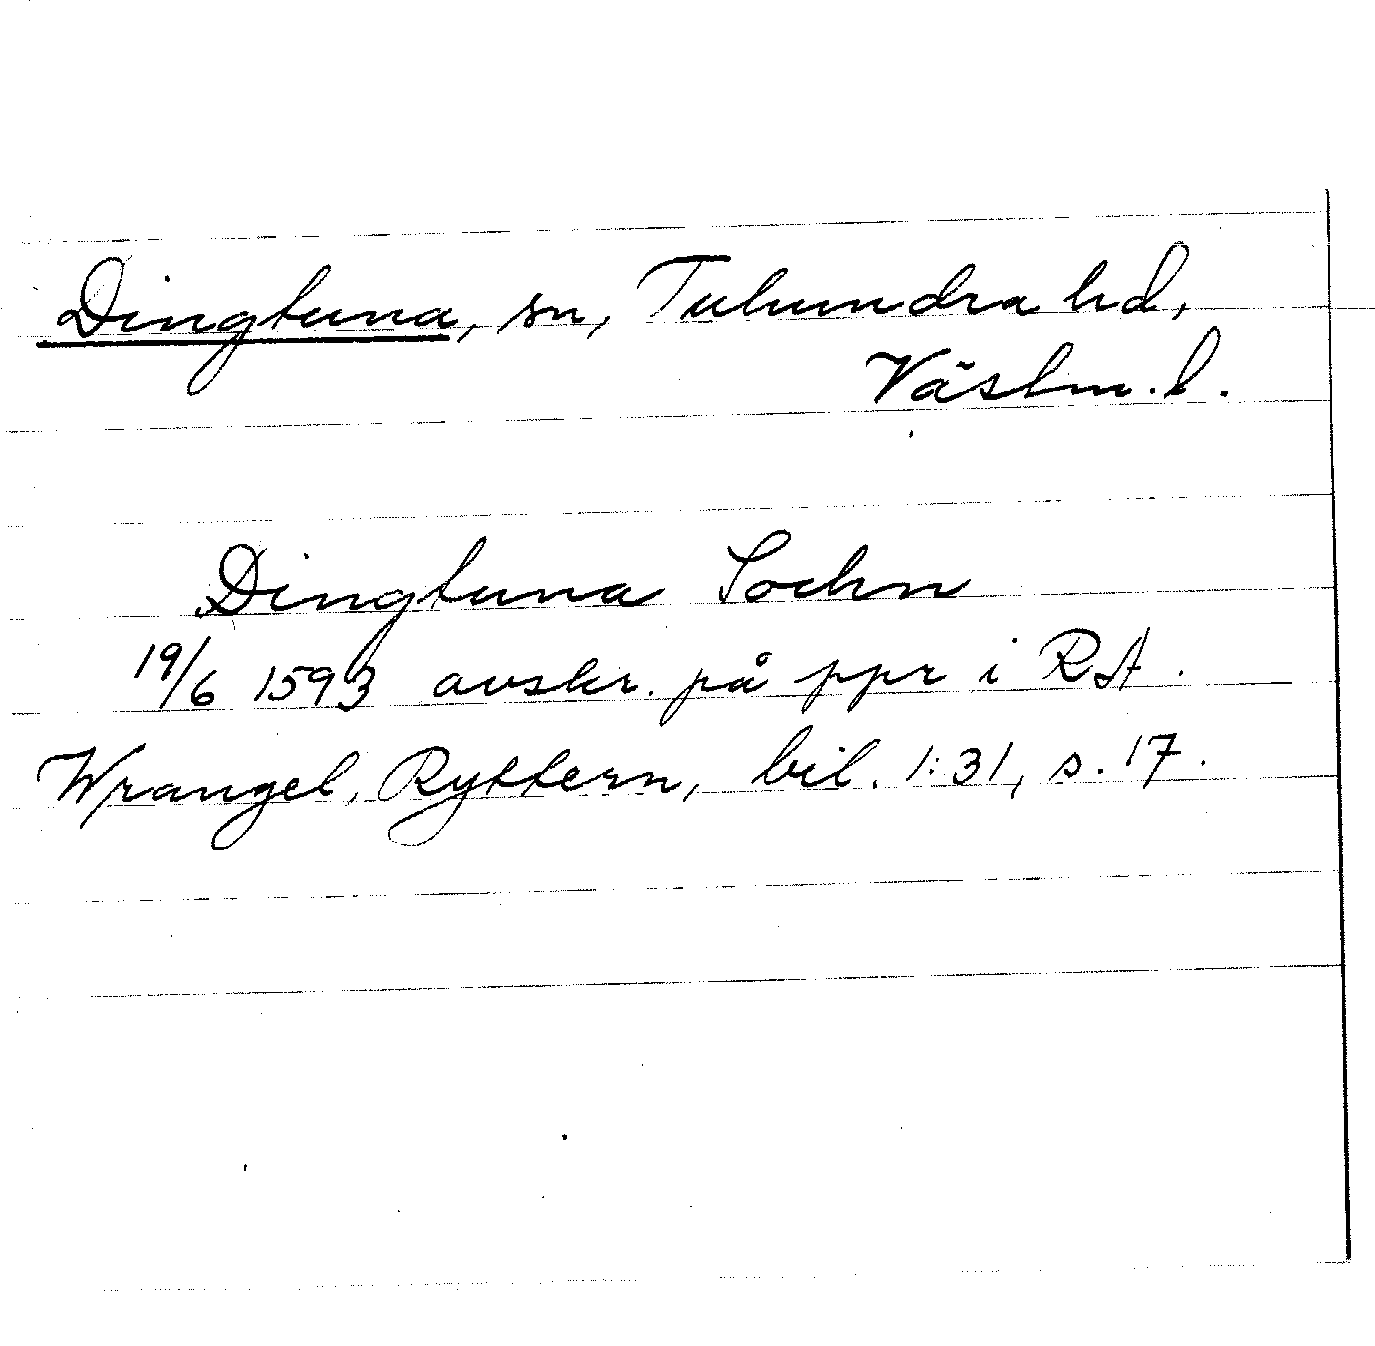 Dingtuna, sn, Tuhundra hd,
Västm. l.
Dingtuna Sochn
19/6 1593 avskr. på ppr i RA.
Wrangel, Ryttern, bil. 1:31, s. 17.